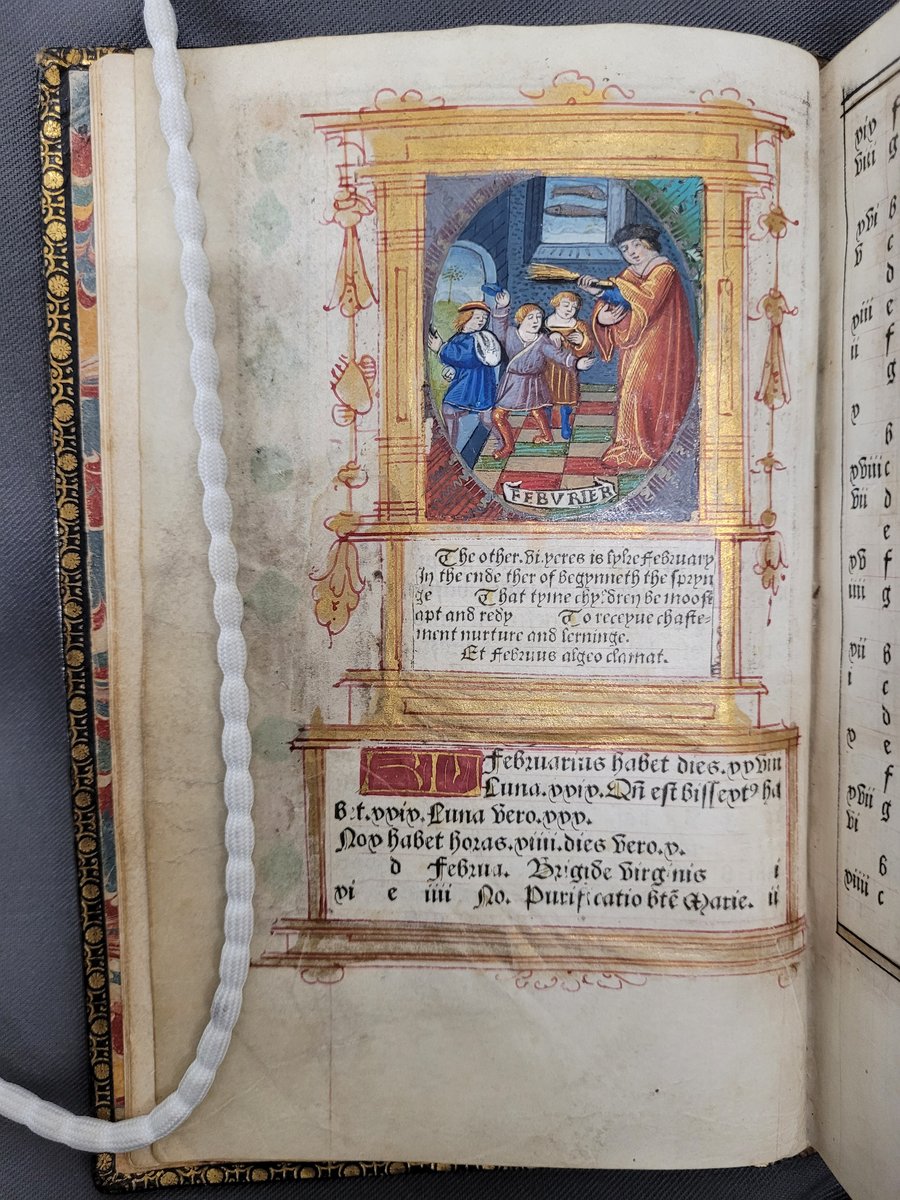 FEBVRIER
The other.vi.yeres is lyke February
In the ende ther of begynneth the spryn
ge That tyme chyldren be moost
apt and redy To receyue chaste-
ment nurture and lerninge.
Et Februus algeo clamat.
Februarius habet dies.xxviii
Luna.xxix. Qn̄ est bissextꝰ ha
bet.xxix. Luna vero.xxx.
Nox habet horas.xiiii. dies vero.x.
d Februa. Brigide virginis i
xi e iiii No. Purificatio btē Marie. ii
xix f
viii g
b
xvi c
v d
e
xiii f
ii g
x b
xviii c
vii d
e
xv f
iiii g
b
xii c
i d
e
xvii g
vi
b
xiiii c